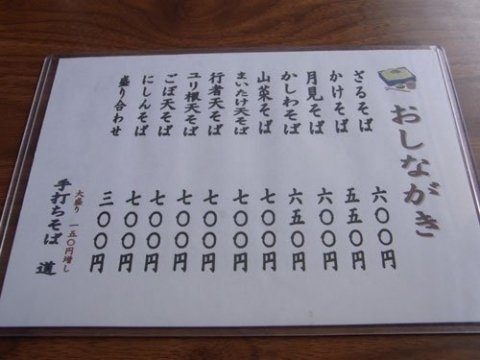 おしながき
ざるそば 六〇〇円
かけそば 五五〇円
月見そば 六〇〇円
かしわそば 六五〇円
山菜そば 七〇〇円
まいたけ天そば 七〇〇円
行者天そば 七〇〇円
ユリ根天そば 七〇〇円
ごぼ天そば 七〇〇円
にしんそば 七〇〇円
盛り合わせ 三〇〇円
大盛り 一五〇円増し
手打ちそば 道